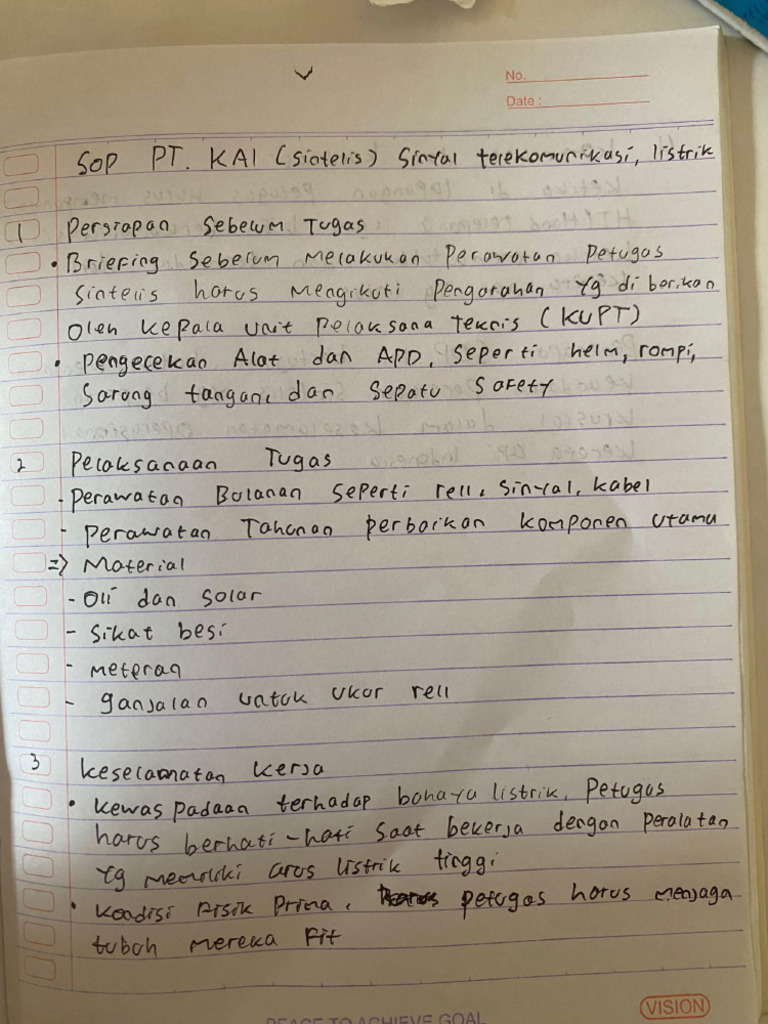 No.
Date :
SOP PT. KAI (Sintelis) Sinyal telekomunikasi, listrik
1 Persiapan Sebelum Tugas
• Briefing Sebelum Melakukan Perawatan Petugas
Sintelis harus Mengikuti Pengarahan Yg di berikan
Oleh Kepala Unit Pelaksana Teknis (KUPT)
• Pengecekan Alat dan APD, Seperti helm, rompi,
Sarung tangan, dan Sepatu Safety
2 Pelaksanaan Tugas
- Perawatan Bulanan Seperti rell, Sinyal, Kabel
- Perawatan Tahunan Perbaikan Komponen Utama
=> Material
- Oli dan Solar
- Sikat besi
- Meteran
- Ganjalan Untuk Ukur rell
3 Keselamatan Kerja
• Kewaspadaan terhadap bahaya listrik, Petugas
harus berhati-hati Saat bekerja dengan Peralatan
Yg Memiliki arus listrik tinggi
• Kondisi Fisik Prima, Petugas harus Menjaga
tubuh Mereka Fit
PEACE TO ACHIEVE GOAL
VISION